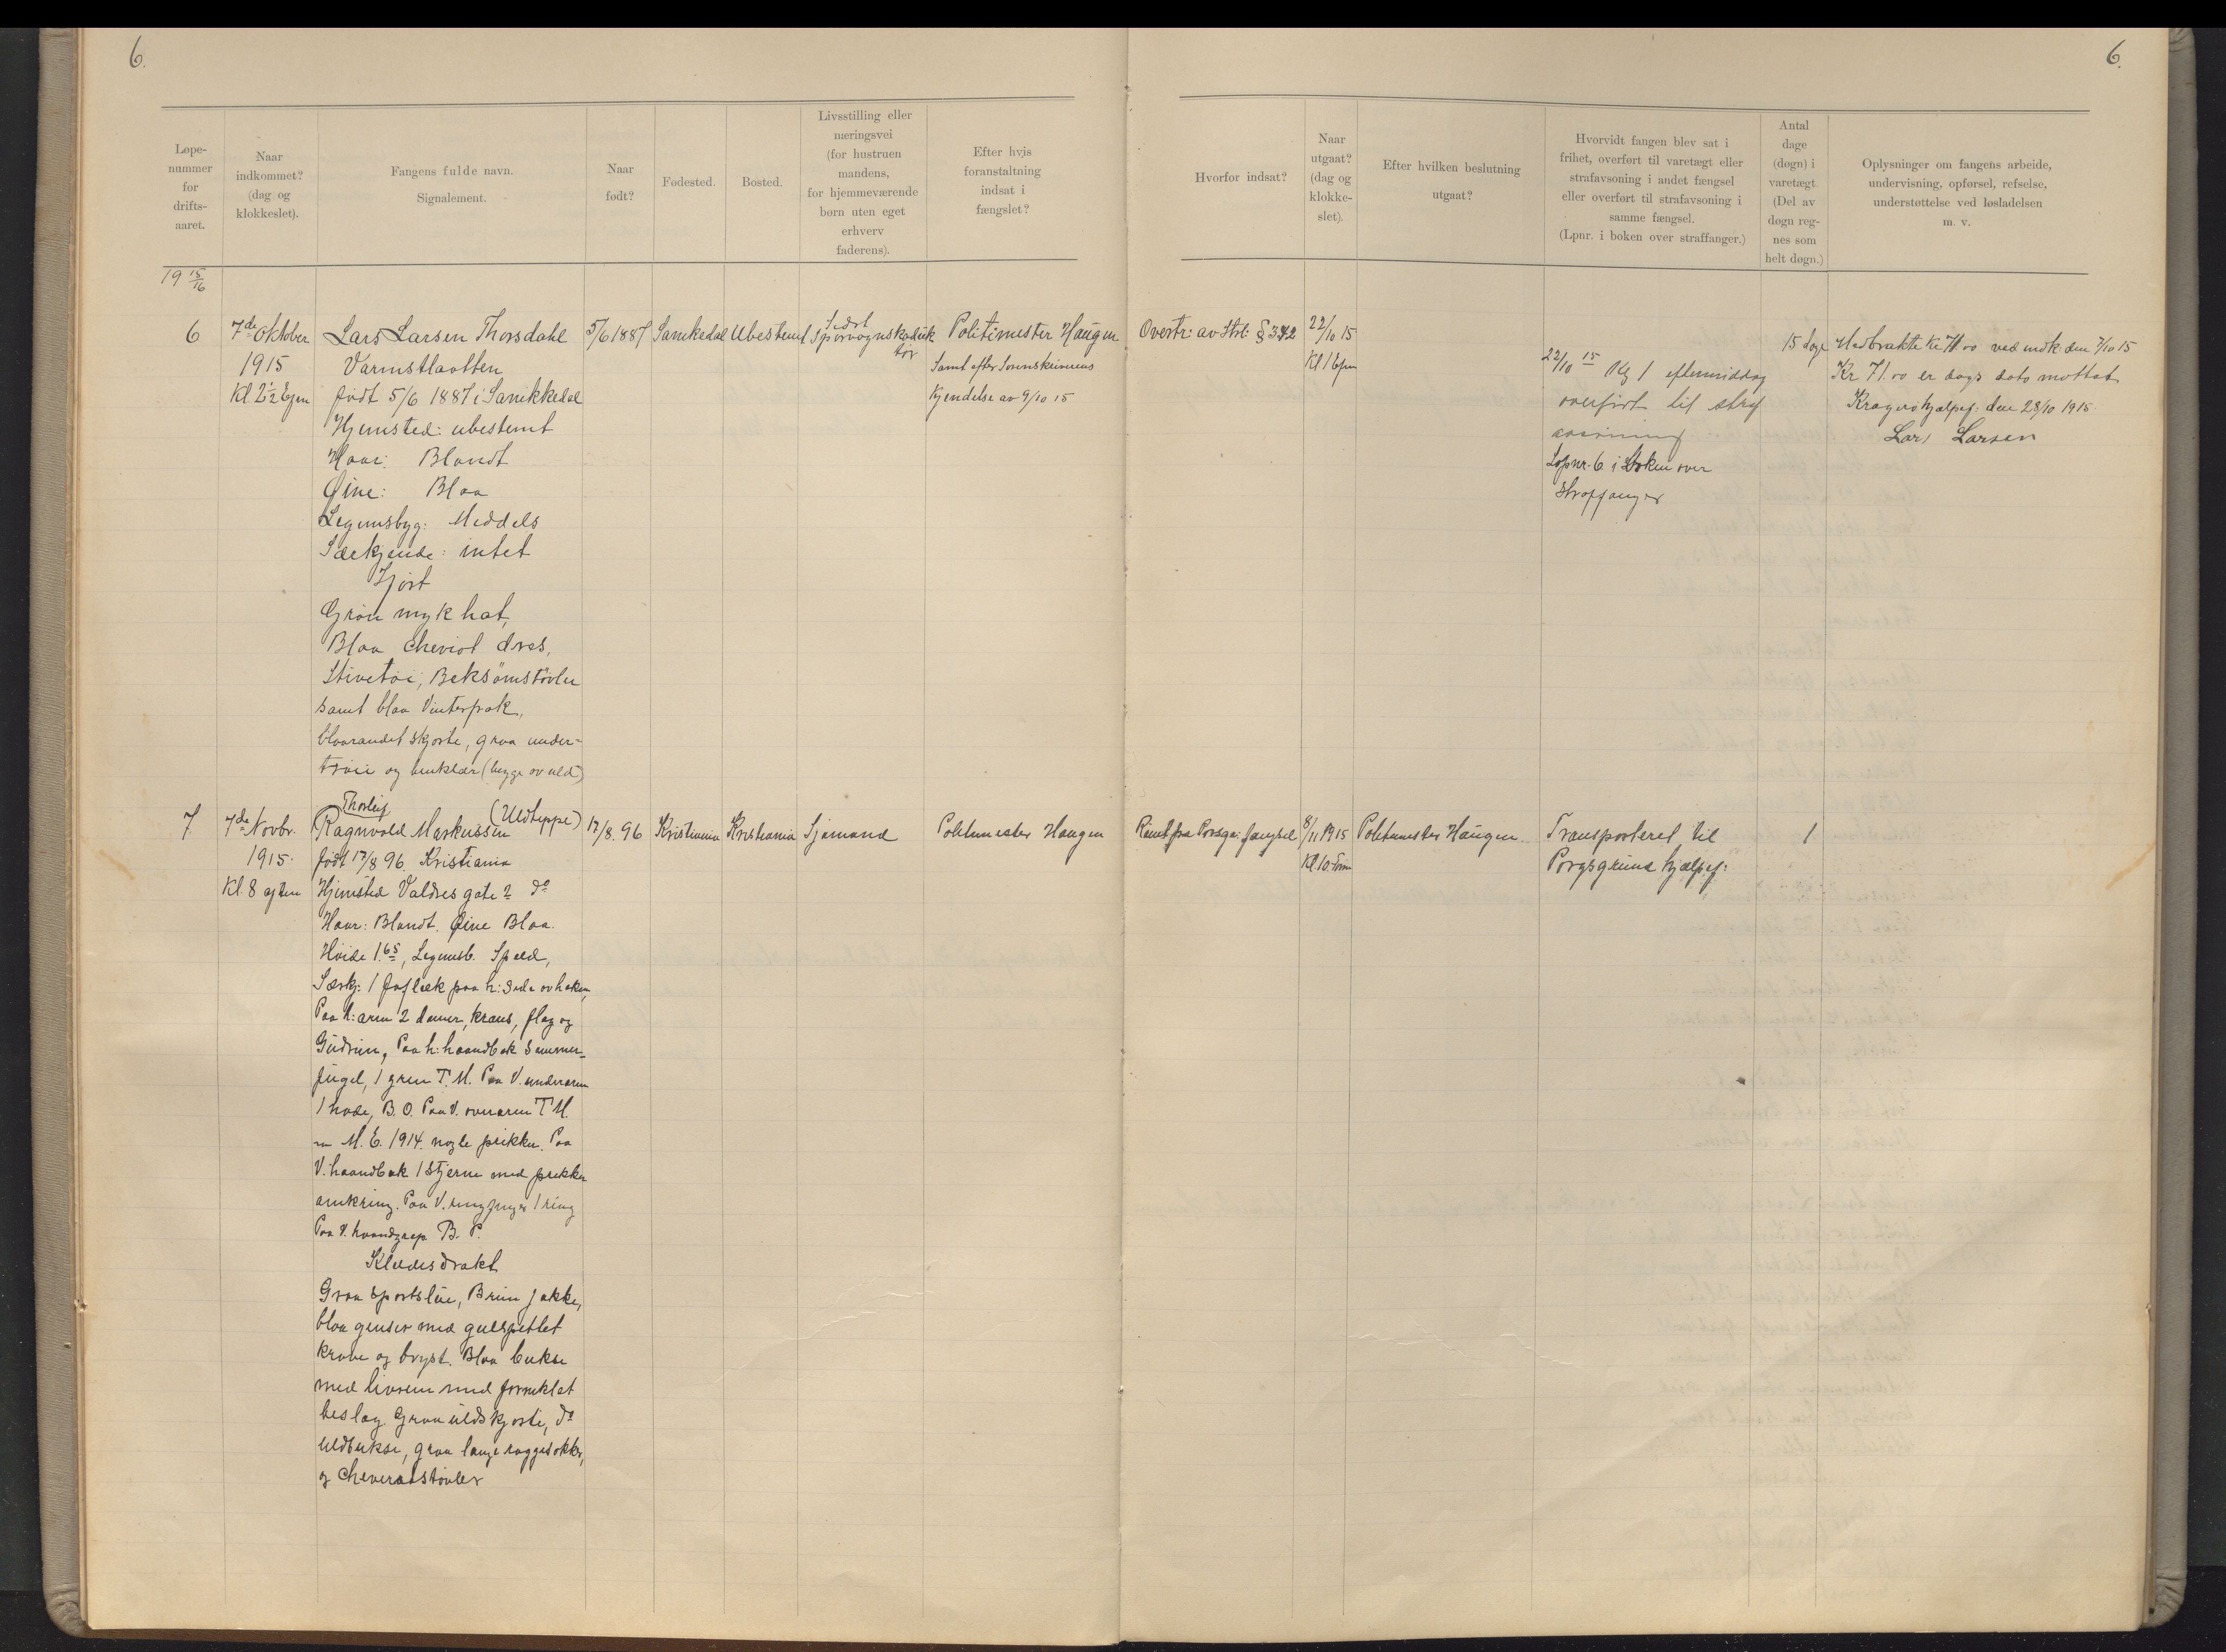 6.
6.
Løpe-
nummer
for
drifts-
aaret.
Naar
indkommet?
(dag og
klokkeslet).
Fangens fulde navn.
Signalement.
Naar
født?
Fødested.
Bosted.
Livsstilling eller
næringsvei
(for hustruen
mandens,
for hjemmeværende
børn uten eget
erhverv
faderens).
Efter hvis
foranstaltning
indsat i
fængslet?
Hvorfor indsat?
Naar
utgaat?
(dag og
klokke-
slet).
Efter hvilken beslutning
utgaat?
Hvorvidt fangen blev sat i
frihet, overført til varetægt eller
strafavsoning i andet fængsel
eller overført til strafavsoning i
samme fængsel.
(Lpnr. i boken over straffanger.)
Antal
dage
(døgn) i
varetægt.
(Del av
døgn reg-
nes som
helt døgn.)
Oplysninger om fangens arbeide,
undervisning, opførsel, refselse,
understøttelse ved løsladelsen
m. v.
19 15/16
6
7de Oktober
1915
Kl 2½ Efm
Lars Larsen Thorsdahl
født 5/6 1887 i Sanikkedal
Hjemsted: ubestemt
Haar: Blondt
Øine: Blaa
Legemsbyg: Middels
Særkjende: intet
Grøn myk hat,
Blaa Cheviot dres,
Stivetøi, Beksømstøvler
samt blaa Vinterfrak,
blaarandet skjorte, graa under-
trøie og benklær (begge av uld)
5/6 1887
Sanikedal
Ubestemt
Sidst
Sporvognskonduk
tør
Politimester Haugen
Samt efter Sorenskriverens
Kjendelse av 9/10 15
Overtr: av Strl: § 342
22/10 15
Kl 1 Efm
22/10 15 Kl 1 eftermiddag
overført til straf
avsoning
Løpnr. 6 i Boken over
Straffanger
15 dage
Medbrakte Kr 71.00 ved indk: den 7/10 15
Kr 71.00 er dags dato mottat
Kragerø hjælpef: den 28/10 1915.
Lars Larsen
7
7de Novbr.
1915.
Kl. 8 aften
Thorleif
(Uldteppe)
Ragnvald Markussen
født 17/8 96. Kristiania
Hjemsted Valdres gate 2 do
Haar: Blondt. Øine Blaa.
Høide 1.65, Legemsb. Spæd,
Særkj: 1 føflæk paa h: side av haken,
Paa h: arm 2 damer, krans, flag og
Gudrun, Paa h: haandbak sommer-
fugel, 1 gren T. M. Paa V. underarm
1 hode, B. O. Paa V. overarm T M.
M. E. 1914. nogle prikker. Paa
V. haandbak 1 stjerne med prikker
omkring. Paa V. ringfinger 1 ring
Paa V. haandgrep B. P.
Klædesdrakt
Graa sportslue, Brun jakke,
blaa genser med gulspettet
krave og bryst. Blaa bukse
med livrem med forniklet
beslag. Graa uldskjorte, do
Uldbukse, graa lange raggsokker,
og Chevreaustøvler
17/8. 96
Kristiania
Kristiania
Sjømand
Politimester Haugen
Rømt fra Porsgr: fængsel
8/11 1915
Kl. 10 Form
Politimester Haugen
Transporteret til
Porsgrund hjælpef:
1